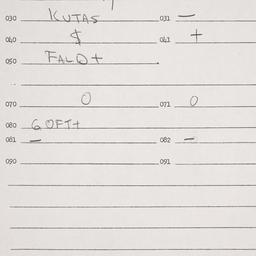 030 KUTAS 031 —
040 $ 041 +
050 FALO+
070 0 071 0
080 60FT+
081 — 082 —
090 091